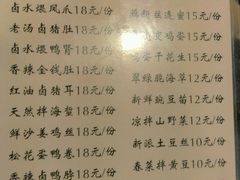 卤水煨凤爪18元/份
老汤卤猪肚18元/份
卤水煨鸭肾18元/份
香辣金钱肚18元/份
红油卤猪耳18元/份
天然拌海蜇18元/份
鲜沙姜鸡丝18元/份
松花蛋鸭卷18元/份
香辣卤鸭脖18元/份
蜜15元/份
变鸡蛋15元/份
蛋干花生15元/份
翠绿脆海草12元/份
新鲜豌豆苗12元/份
凉拌山野菜12元/份
新派土豆丝10元/份
春菜拌黄豆10元/份